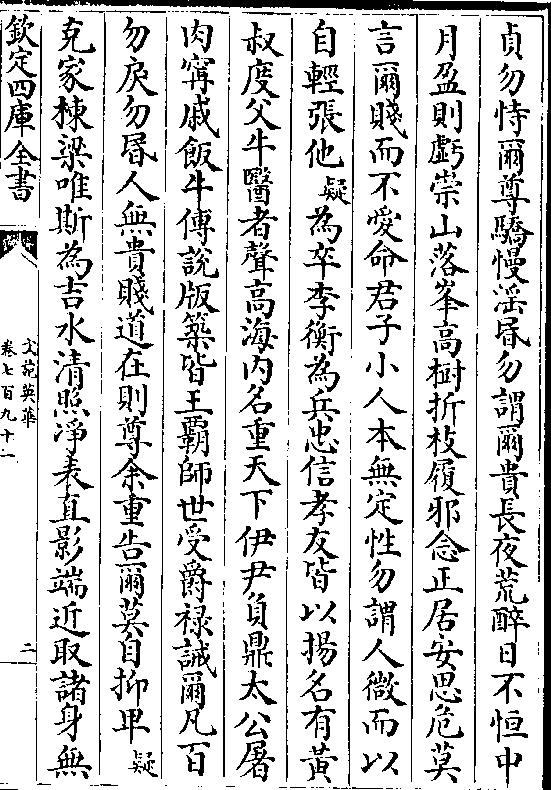 貞勿恃爾尊驕慢滛昬勿謂爾貴長夜荒醉日不恒中
月盈則虧崇山落峯高樹折枝履邪念正居安思危莫
言爾賤而不愛命君子小人本無定性勿謂人微而以
自輕張他疑為卒李衡為兵忠信孝友皆以揚名有黃
叔度父牛醫者聲高海内名重天下伊尹負鼎太公屠
肉甯戚飯牛傅說版築皆王霸師世受爵禄誡爾凡百
勿戾勿昬人無貴賤道在則尊余重告爾莫自抑卑疑
克家棟梁唯斯為吉水清照凈表直影端近取諸身無
欽定四庫全書
文苑英華
卷七百九十一
二